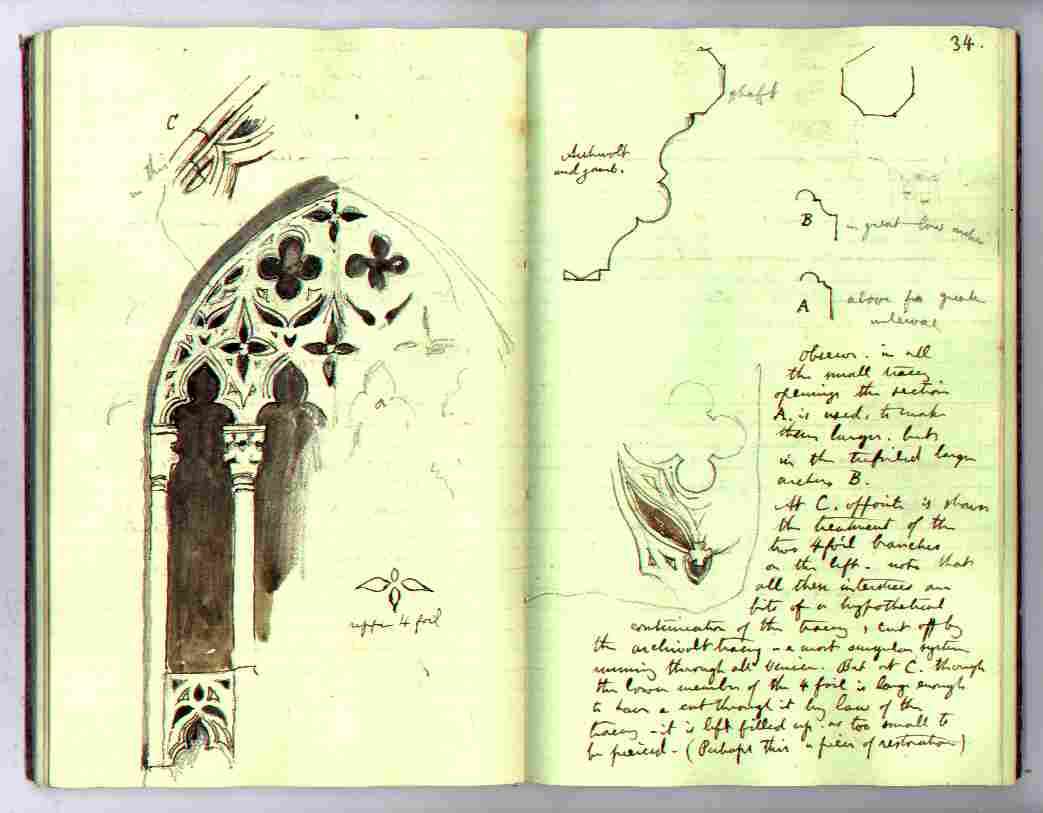 C
in this
a
upper 4 foil
34.
shaft
Archivolt
and jamb.
B
in great low arches
A
above for greater
interval
Observe. in all
the small tracery
openings the section
A. is used, to make
them larger. but
in the trefoiled larger
arches B.
At C. opposite is shown
the treatment of the
two 4foil branches
on the left. note that
all these interstices are
bits of a hypothetical
continuation of the tracery, cut off by
the archivolt tracery - a most singular system
running through all Venice. But at C. though
the lower member of the 4 foil is large enough
to have a cut through it by law of the
tracery - it is left filled up. as too small to
be pierced - (Perhaps this a piece of restoration)